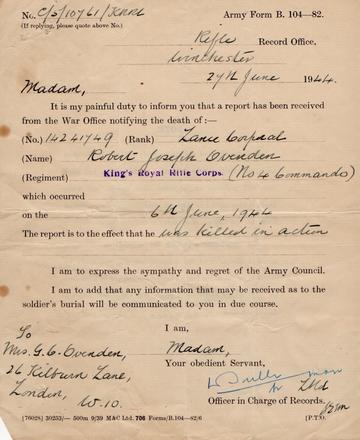 No. C/S/10761/KRRC Army Form B. 104—82.
(If replying, please quote above No.)
Rifle Record Office,
Winchester
27th June 1944.
Madam,
It is my painful duty to inform you that a report has been received
from the War Office notifying the death of :—
(No.) 14241749 (Rank) Lance Corporal
(Name) Robert Joseph Ovenden
(Regiment) King's Royal Rifle Corps. (No 4 Commando)
which occurred
on the 6th June, 1944
The report is to the effect that he was killed in action
I am to express the sympathy and regret of the Army Council.
I am to add that any information that may be received as to the
soldier's burial will be communicated to you in due course.
I am,
To
Mrs. G. C. Ovenden, Madam,
Your obedient Servant,
26 Kilburn Lane,
London,
W. 10.
Officer in Charge of Records.
[76028] 30253/— 500m 9/39 M&C Ltd. 706 Forms/B.104—82/6 [P.T.O.